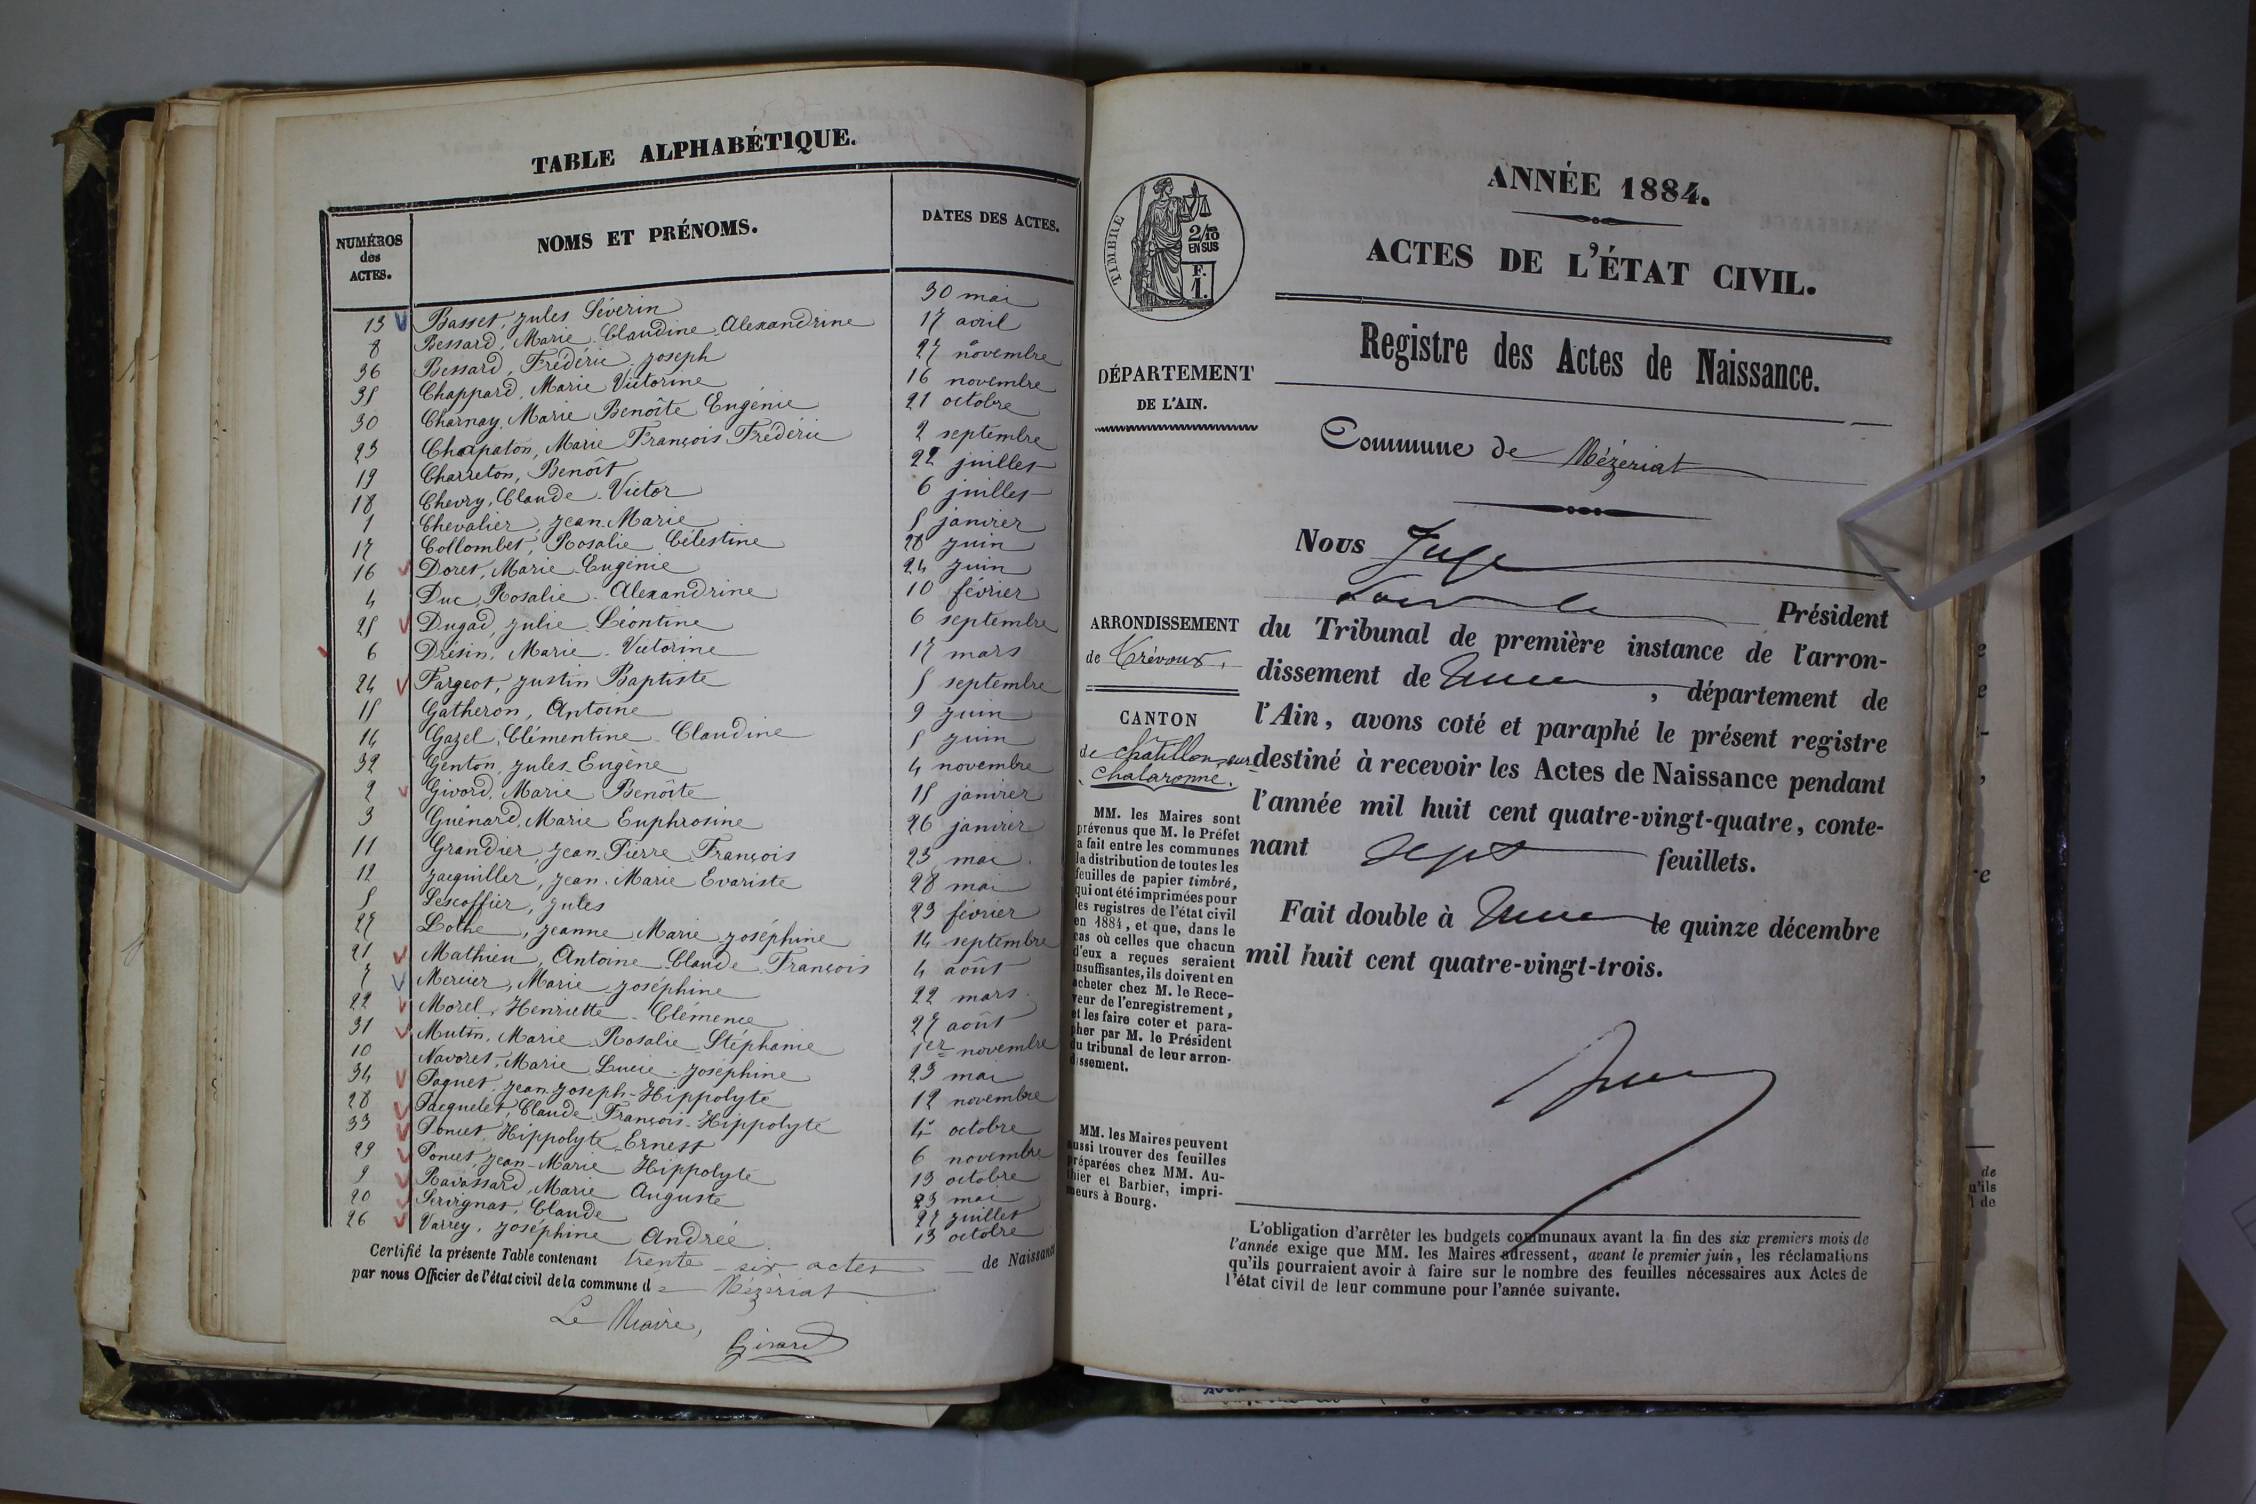 TABLE ALPHABÉTIQUE.
NUMÉROS des ACTES. NOMS ET PRÉNOMS. DATES DES ACTES.
13 Basset, Jules Séverin 30 mai
8 Bessard, Marie Claudine Alexandrine 17 avril
36 Bessard, Frédéric Joseph 27 novembre
35 Chappard, Marie Victorine 16 novembre
30 Charnay, Marie Benoîte Eugénie 21 octobre
23 Chapaton, Marie François Frédéric 2 septembre
19 Charreton, Benoît 22 juillet
18 Chevry, Claude Victor 6 juillet
1 Chevalier, Jean Marie 5 janvier
17 Collombet, Rosalie Célestine 28 juin
16 Doret, Marie Eugénie 24 juin
4 Duc, Rosalie Alexandrine 10 février
25 Dugad, Julie Léontine 6 septembre
6 Drésin, Marie Victorine 17 mars
24 Fargeot, Justin Baptiste 5 septembre
15 Gatheron, Antoine 9 juin
14 Gazel, Clémentine Claudine 5 juin
32 Genton, Jules Eugène 4 novembre
2 Givord, Marie Benoîte 15 janvier
3 Guénard, Marie Euphrosine 26 janvier
11 Grandier, Jean Pierre François 23 mai
12 Jacquiller, Jean Marie Evariste 28 mai
5 Lescoffier, Jules 23 février
27 Lothe, Jeanne Marie Joséphine 14 septembre
21 Mathieu, Antoine Claude François 4 août
7 Mercier, Marie Joséphine 22 mars
22 Morel, Henriette Clémence 27 août
31 Mutin, Marie Rosalie Stéphanie 1er novembre
10 Navoret, Marie Lucie Joséphine 23 mai
34 Paquet, Jean-Joseph-Hippolyte 12 novembre
28 Pacquelet, Claude François Hippolyte octobre
33 Poncet, Hippolyte Ernest 6 novembre
29 Poncet, Jean-Marie Hippolyte 13 octobre
9 Ravassard, Marie Auguste 23 mai
20 Servignat, Claude 27 juillet
26 Varrey, Joséphine Andrée 13 octobre
Certifié la présente Table contenant trente-six actes de Naissance
par nous Officier de l'état civil de la commune de Mézériat
Le Maire,
Girard
TIMBRE
2/10
EN SUS
F.
1.
DÉPARTEMENT
DE L'AIN.
ARRONDISSEMENT
de Trévoux.
CANTON
de Châtillon-sur-
Chalaronne.
MM. les Maires sont
prévenus que M. le Préfet
a fait entre les communes
la distribution de toutes les
feuilles de papier timbré,
qui ont été imprimées pour
les registres de l'état civil
en 1884, et que, dans le
cas où celles que chacun
d'eux a reçues seraient
insuffisantes, ils doivent en
acheter chez M. le Rece-
veur de l'enregistrement,
et les faire coter et para-
pher par M. le Président
du tribunal de leur arron-
dissement.
MM. les Maires peuvent
aussi trouver des feuilles
préparées chez MM. Au-
thier et Barbier, impri-
meurs à Bourg.
ANNÉE 1884.
ACTES DE L'ÉTAT CIVIL.
Registre des Actes de Naissance.
Commune de Mézériat
Nous Juge
Président
du Tribunal de première instance de l'arron-
dissement de , département de
l'Ain, avons coté et paraphé le présent registre
destiné à recevoir les Actes de Naissance pendant
l'année mil huit cent quatre-vingt-quatre, conte-
nant sept feuillets.
Fait double à le quinze décembre
mil huit cent quatre-vingt-trois.
L'obligation d'arrêter les budgets communaux avant la fin des six premiers mois de
l'année exige que MM. les Maires adressent, avant le premier juin, les réclamations
qu'ils pourraient avoir à faire sur le nombre des feuilles nécessaires aux Actes de
l'état civil de leur commune pour l'année suivante.